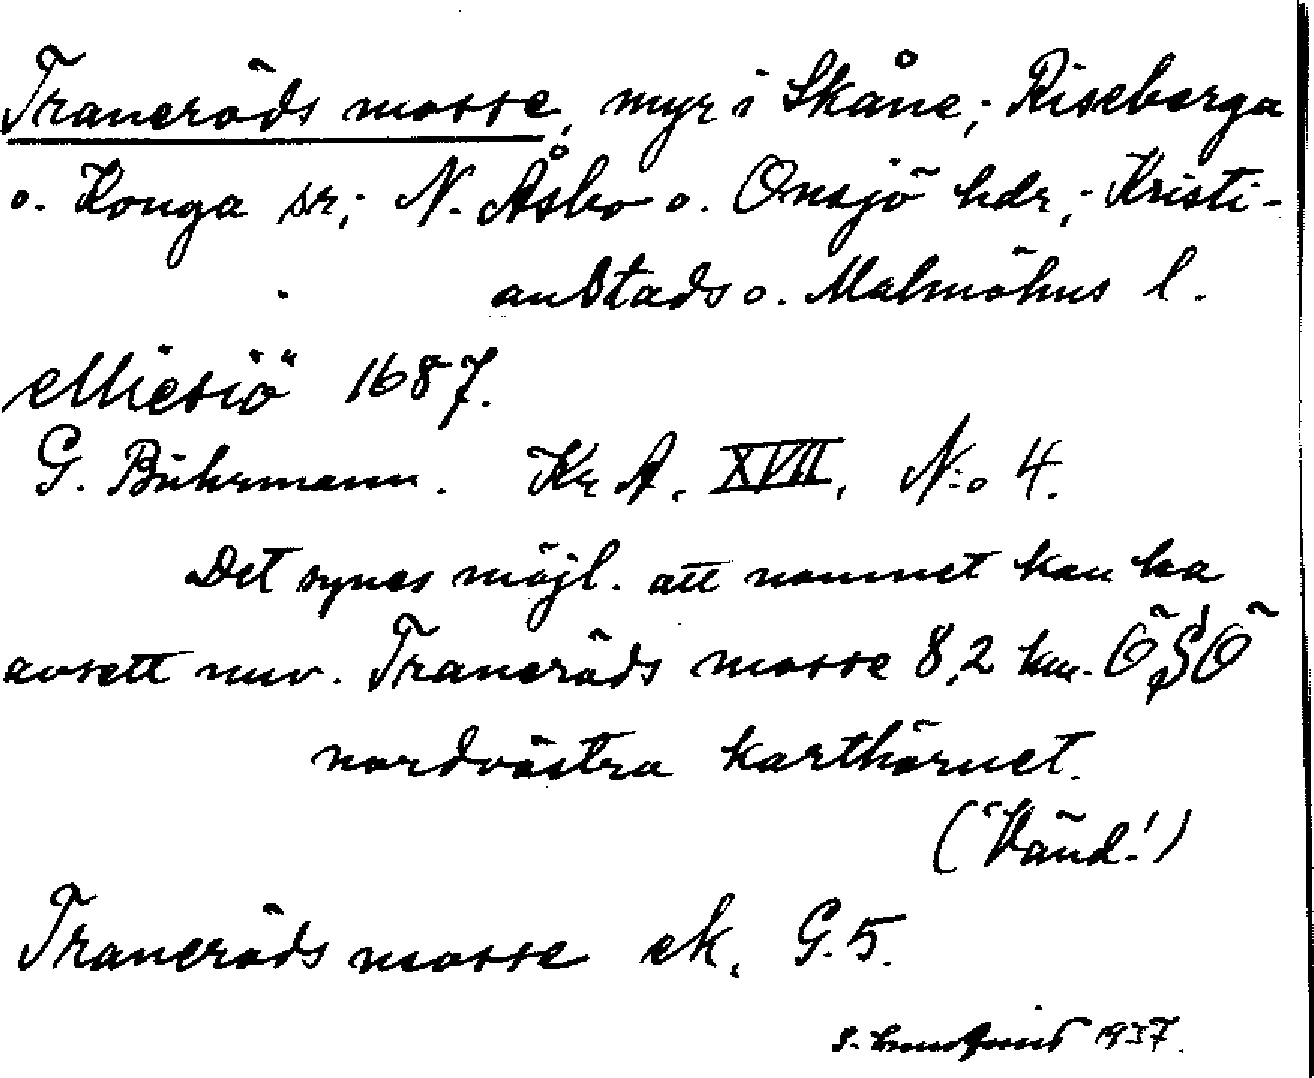 Traneröds mosse, myr i Skåne; Riseberga
o. Konga sr; N. Åsbo o. Onsjö hdr; Kristi-
anstads o. Malmöhus l.
Miesiö 1687.
G. Buhrmann. Kr A. XVII, N:o 4.
Det synes möjl. att namnet kan ha
avsett nuv. Traneröds mosse 8,2 km. ÖSÖ
nordvästra karthörnet.
(Vänd!)
Traneröds mosse ek. G.5.
1937.